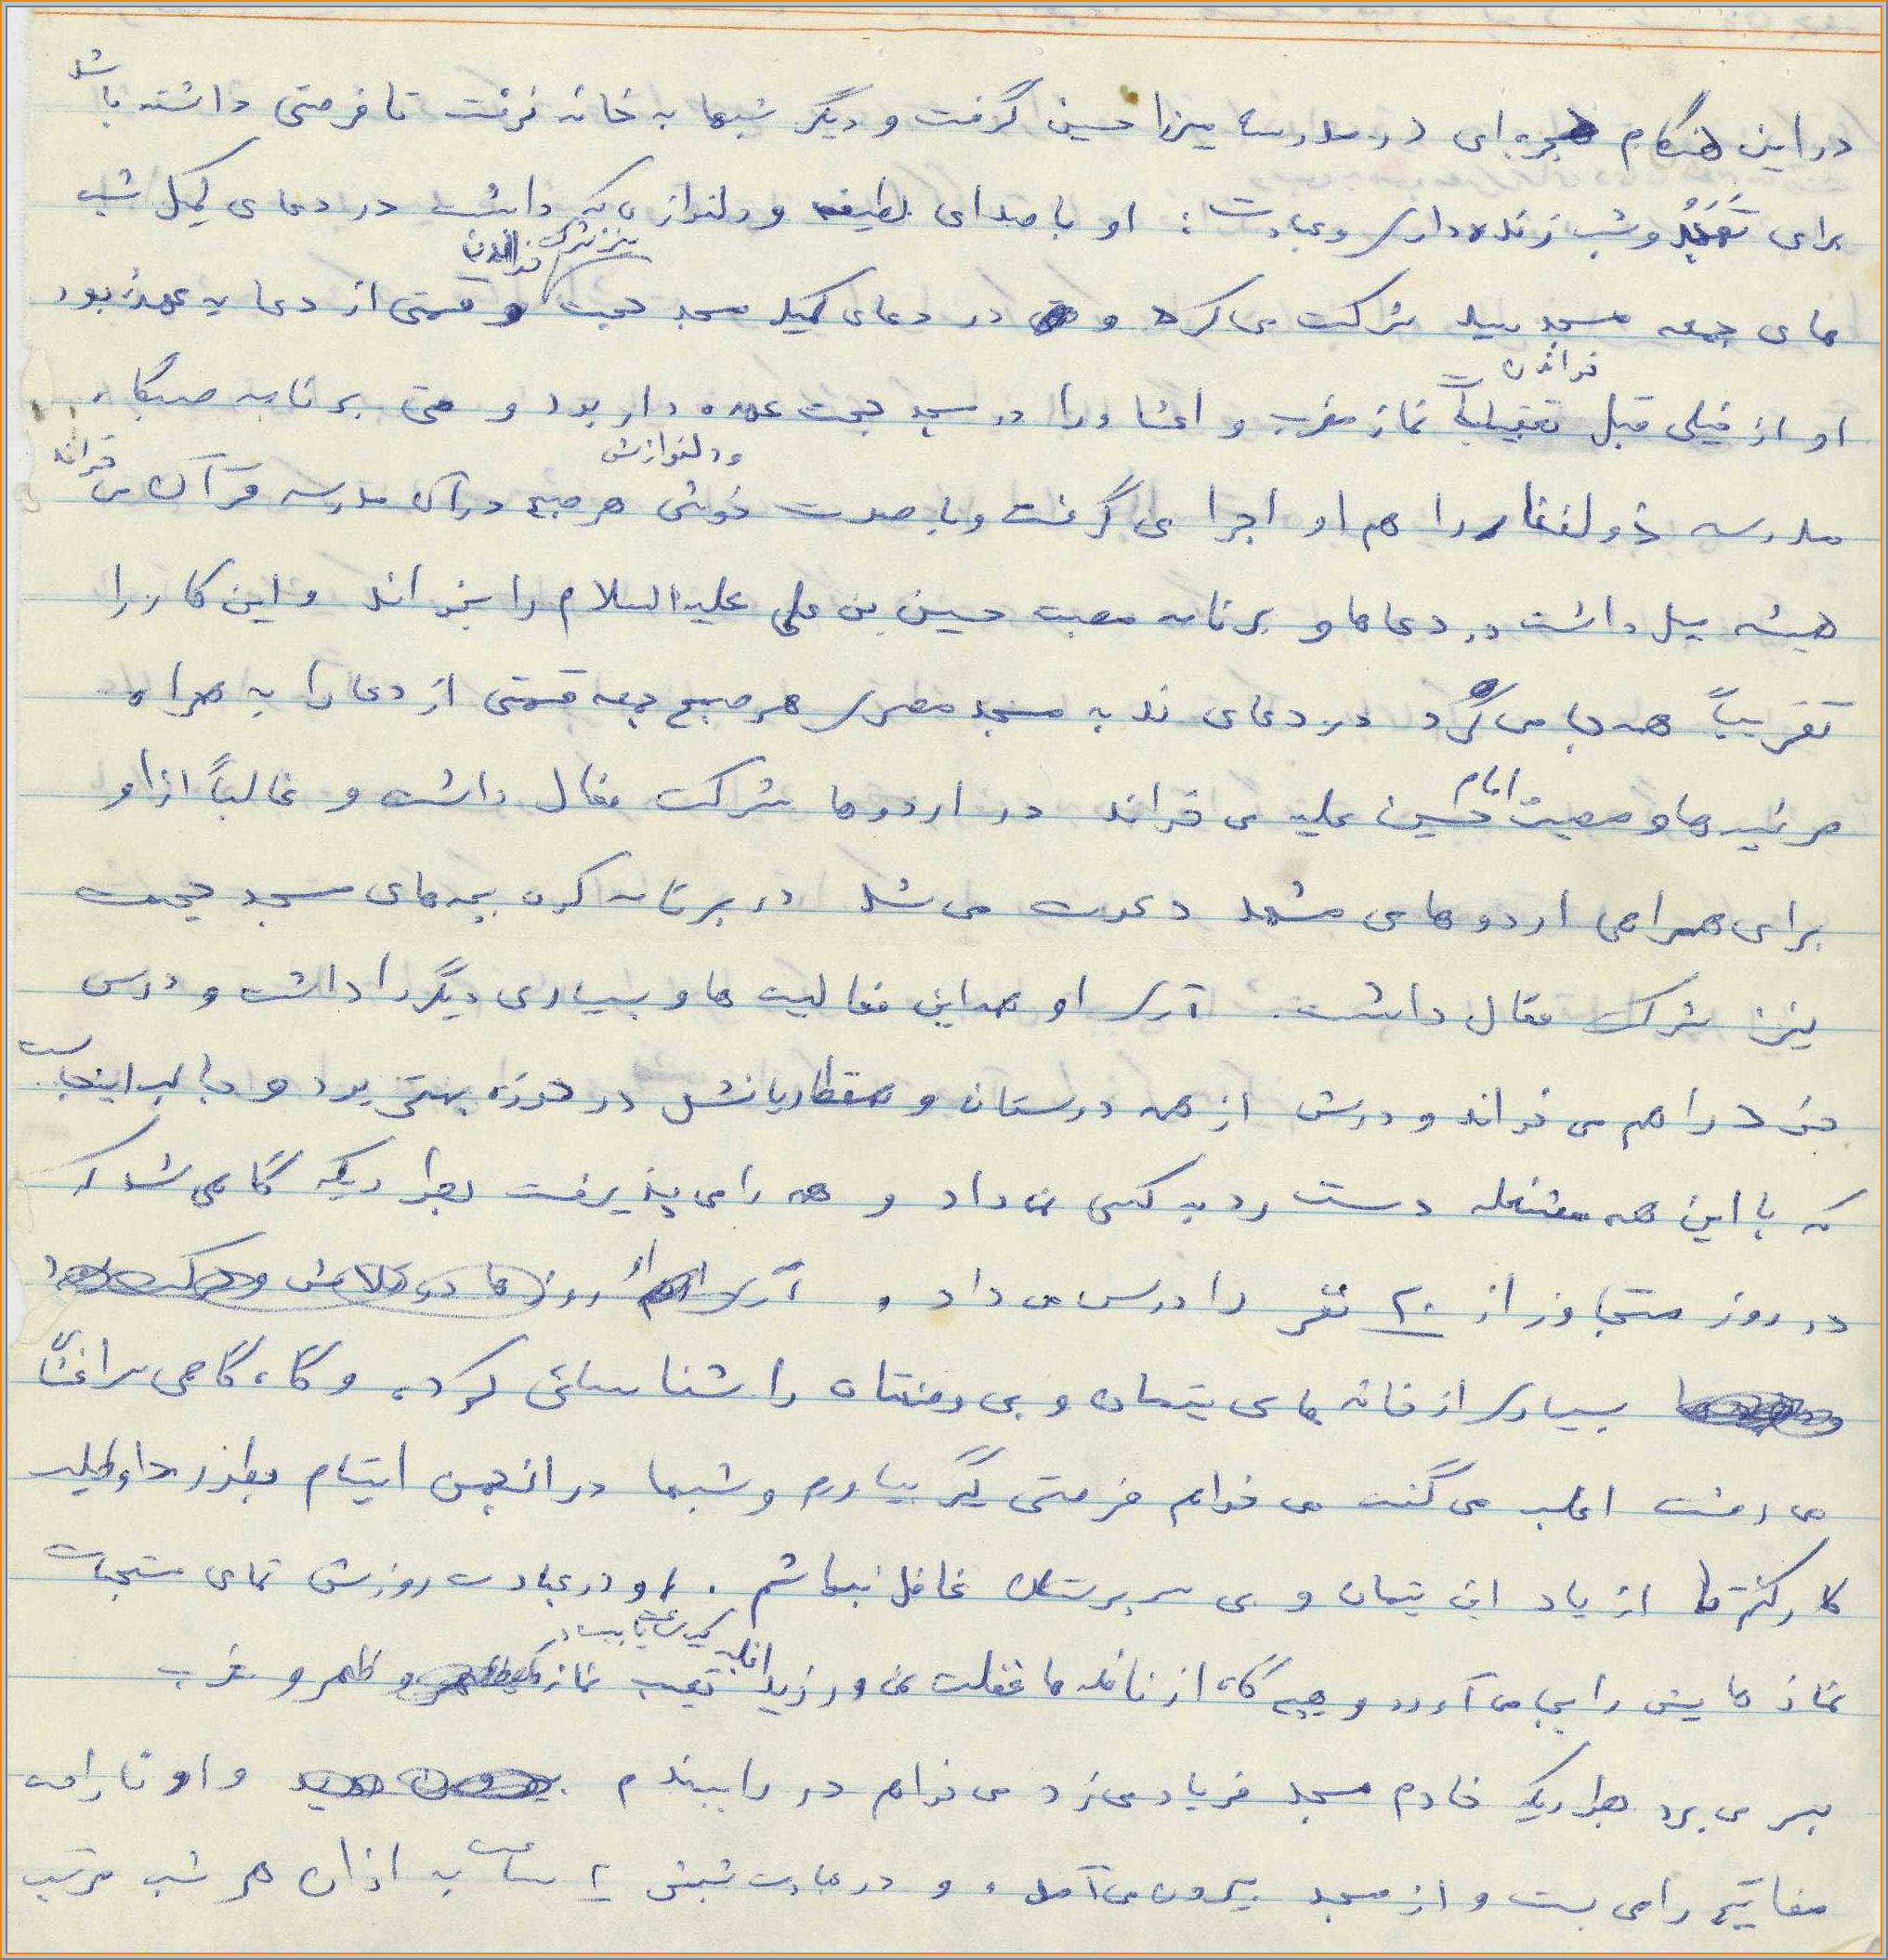 در این هنگام حجره‌ای در مدرسه میرزا حسین گرفت و دیگر شبها به خانه نرفت تا فرصتی داشته باشد
برای تفکر و شب زنده‌داری و عبادت: او با صدای لطیف و دلنوازی که داشت در دعای کمیل شب
های جمعه مسجد سید شرکت می‌کرد و در دعای کمیل مسجد حجت نیز شرکت و خواندن قسمتی از دعا به عهده‌اش بود
او از خیلی قبل خواندن تعقیبات نماز مغرب و اعشاء را در مسجد حجت عهده دار بود و حتی برنامه صبحگاه
مدرسه ذولفقار را هم او اجرا می گرفت و با صوت خوش و دلنوازش هر صبح در آن مدرسه قرآن می خواند
همیشه میل داشت در دعاها و برنامه مصیبت حسین بن علی علیه السلام را بخواند و این کار را
تقریباً همه جا می‌کرد در دعای ندبه مسجد مصری هر صبح جمعه قسمتی از دعا را به همراه
مرثیه‌ها و مصیبت امام حسین علیه می خواند در اردوها شرکت فعال داشت و غالباً از او
برای همراهی اردوهای مشهد دعوت می شد در برنامه کوه بچه‌های مسجد حجت
نیز شرکت فعال داشت. آری او همه این فعالیت ها و بسیاری دیگر را داشت و درس
خود را هم می خواند و درسش از همه دوستان و همقطاریانش در حوزه بهتر بود و جالب اینجاست
که با این همه مشغله دست رد به کسی نمی داد و همه را می پذیرفت بطوریکه گاهی می شد که
در روز متجاوز از ۲۰ نفر را درس می داد. آری او روزها
بسیاری از خانه های یتیمان و بی بضاعتان را شناسائی کرده و گاه گاهی سراغشان
می رفت اغلب می گفت می خواهم فرصتی گیر بیاورم و شبها در انجمن ایتام بطور داوطلب
کار کنم تا از یاد این یتیمان و بی سرپرستان غافل نباشم. او در عبادت روزش تمامی مستحبات
نماز هایش را بجا می آورد و هیچ گاه از نافله ها غفلت نمی ورزید اغلب تعقیب نماز ظهر و مغرب
بسر می برد بطوریکه خادم مسجد فریاد می زد می خواهم در را ببندم و او ناراحت
مفاتیح را می بست و از مسجد بیرون می آمد، و در عبادت شبش ۲ ساعت به اذان هر شب مرتب